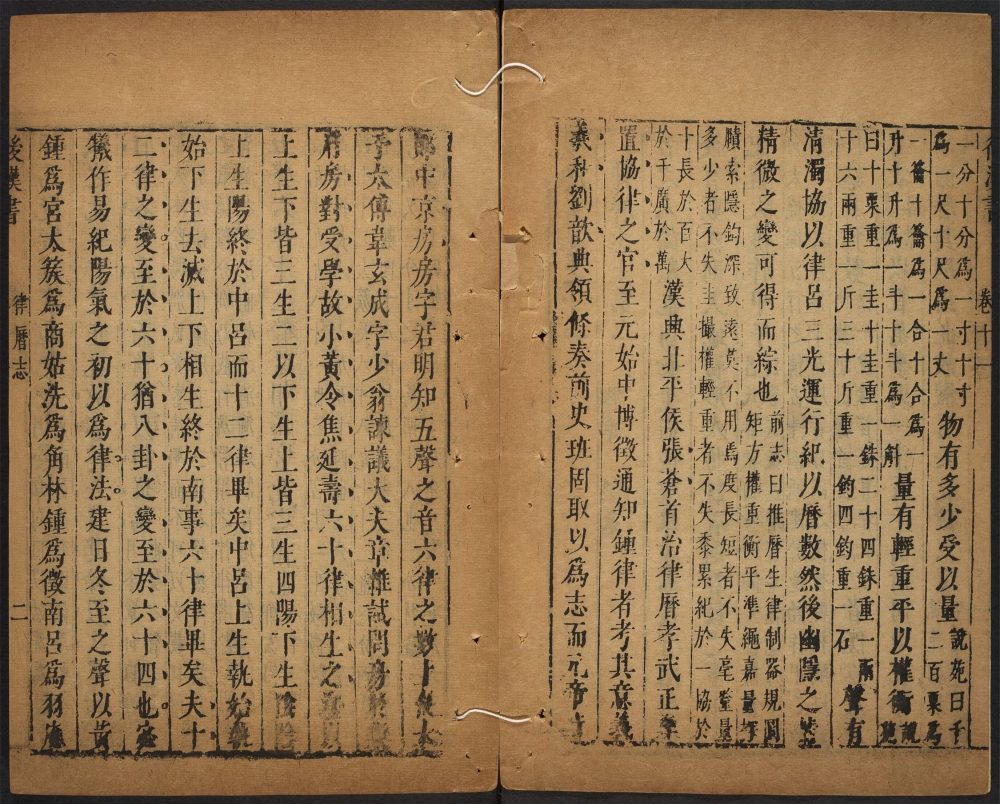 卷十一
一分十分爲一寸十寸
爲一尺十尺爲一丈
物有多少受以量
說苑曰千
二百粟爲
一籥十籥爲一合十合爲一
升十升爲一斗十斗爲一斛
量有輕重平以權衡
說苑
曰十粟重一圭十圭重一銖二十四銖重一兩
十六兩重一斤三十斤重一鈞四鈞重一石
聲有
清濁協以律呂三光運行紀以曆數然後幽隱之情
精微之變可得而綜也
前志曰推曆生律制器規圜
矩方權重衡平準繩嘉量探
賾索隱鈎深致遠莫不用焉度長短者不失毫氂量
多少者不失圭撮權輕重者不失黍累紀於一協於
十長於百大
於千廣於萬
漢興北平侯張蒼首治律曆孝武正樂
置協律之官至元始中博徵通知鍾律者考其意義
羲和劉歆典領條奏前史班固取以爲志而元帝時
郎中京房房字君明知五聲之音六律之數上使太
子太傅韋玄成字少翁諫議大夫章雜試問房於樂
府房對受學故小黃令焦延壽六十律相生之法以
上生下皆三生二以下生上皆三生四陽下生陰陰
上生陽終於中呂而十二律畢矣中呂上生執始執
始下生去滅上下相生終於南事六十律畢矣夫十
二律之變至於六十猶八卦之變至於六十四也宓
犧作易紀陽氣之初以爲律法建日冬至之聲以黃
鍾爲宮太蔟爲商姑洗爲角林鍾爲徵南呂爲羽應
後漢書 律曆志 二